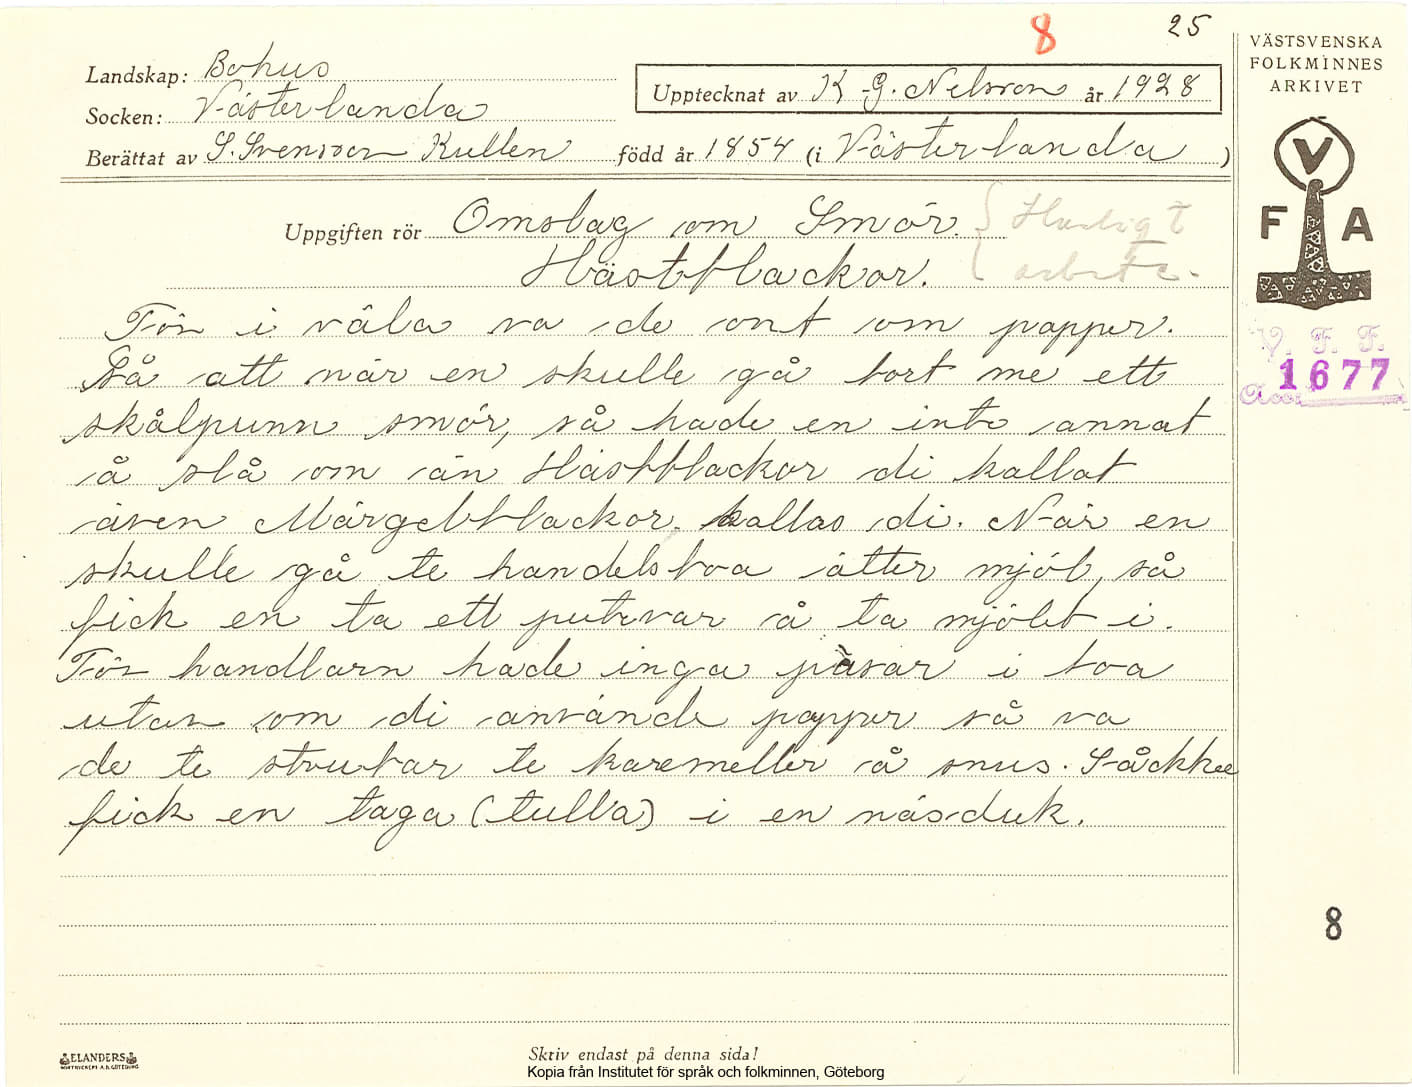 8
25
VÄSTSVENSKA
FOLKMINNES
ARKIVET
Landskap: Bohus
Upptecknat av K-G. Nelsson år 1928
Socken: Västerlanda
Berättat av S. Svensson Kullen född år 1854 (i Västerlanda)
V
F A
Uppgiften rör Omslag om Smör. Husligt
Hästblackor. arbete.
Förr i väla va de ont om papper.
Så att när en skulle gå bort me ett
skålpunn smör, så hade en inte annat
å slå om än Hästblackor di kallat
även Märgelblackor kallas di. När en
skulle gå te handelsboa åtter mjöl, så
fick en ta ett putevar å ta mjölet i.
För handlarn hade inga påsar i boa
utan om di använde papper så va
de te strutar te karemeller å snus. Såckker
fick en taga (tulla) i en näsduk.
V. F. F.
Acc. 1677
8
ELANDERS
BOKTRYCKERI A.B. GÖTEBORG
Skriv endast på denna sida!
Kopia från Institutet för språk och folkminnen, Göteborg